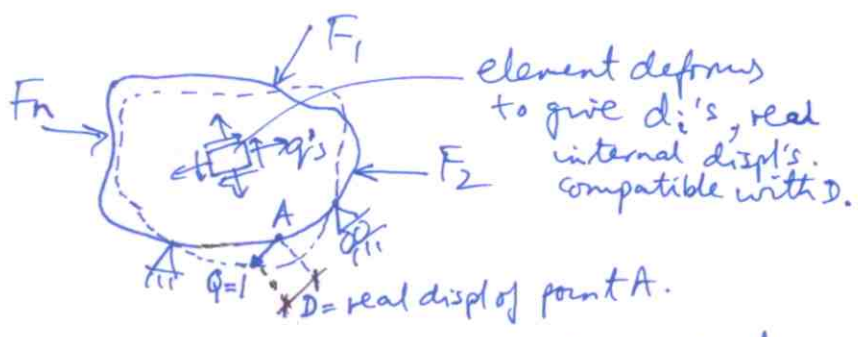 F₁
element deforms
to give dᵢ's, real
internal displ's.
compatible with D.
Fn
q's
F₂
A
Q=1
D = real displ of point A.